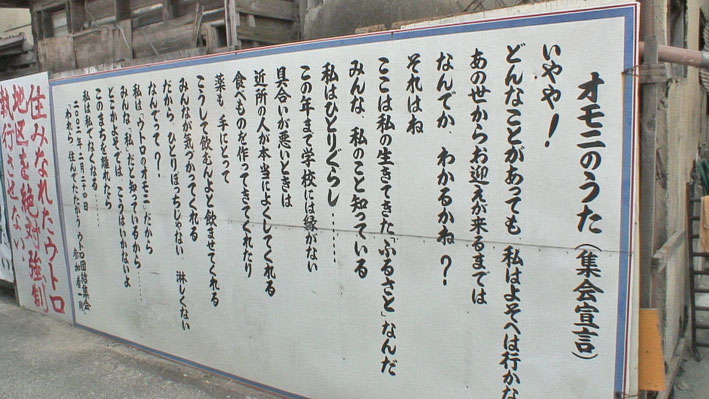 オモニのうた(集会宣言)
いやや!
どんなことがあっても 私はよそへは行かな
あのせからお迎えが来るまでは
なんでか、わかるかね?
それはね
ここは私の生きてきた「ふるさと」なんだ
みんな、私のこと知っている
私はひとりぐらし……
この年まで学校には縁がない
具合いが悪いときは
近所の人が本当によくしてくれる
食べものを作ってきてくれたり
薬も 手にとって
こうして飲むんよと飲ませてくれる
みんなが気づかってくれる
だから ひとりぼっちじゃない 淋しくない
なんでって?
私は「ウトロのオモニ」だから
みんな「私」だと知っているから……
どこかよそでは こうはいかないよ
このまちを離れたら
私は私でなくなる……
二〇〇二年二月二十日
「われら 住んでたたかう」ウトロ団結集会
参加者一同
住みなれたウトロ
地区を絶対強制
執行させない